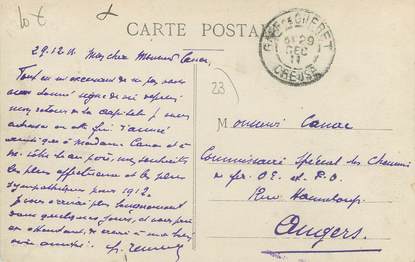 CARTE POSTALE
29.12.11 Mon cher Monsieur Canac,
Tout en m'excusant de ne pas vous
avoir donné signe de vie depuis
mon retour de la capitale, je vous
adresse en cette fin d'année
ainsi qu'à Madame Canac et à
mes souhaits
les plus affectueux et les plus
sympathiques pour 1912.
Je vous écrirai plus longuement
dans quelques jours, et vous prie
en attendant, de croire à ma
GARE DE GUERET
29
DEC
11
CREUSE
23
Monsieur Canac
Commissaire Spécial des Chemins
de fer O.E. et P.O.
Rue Hanneloup.
Angers.